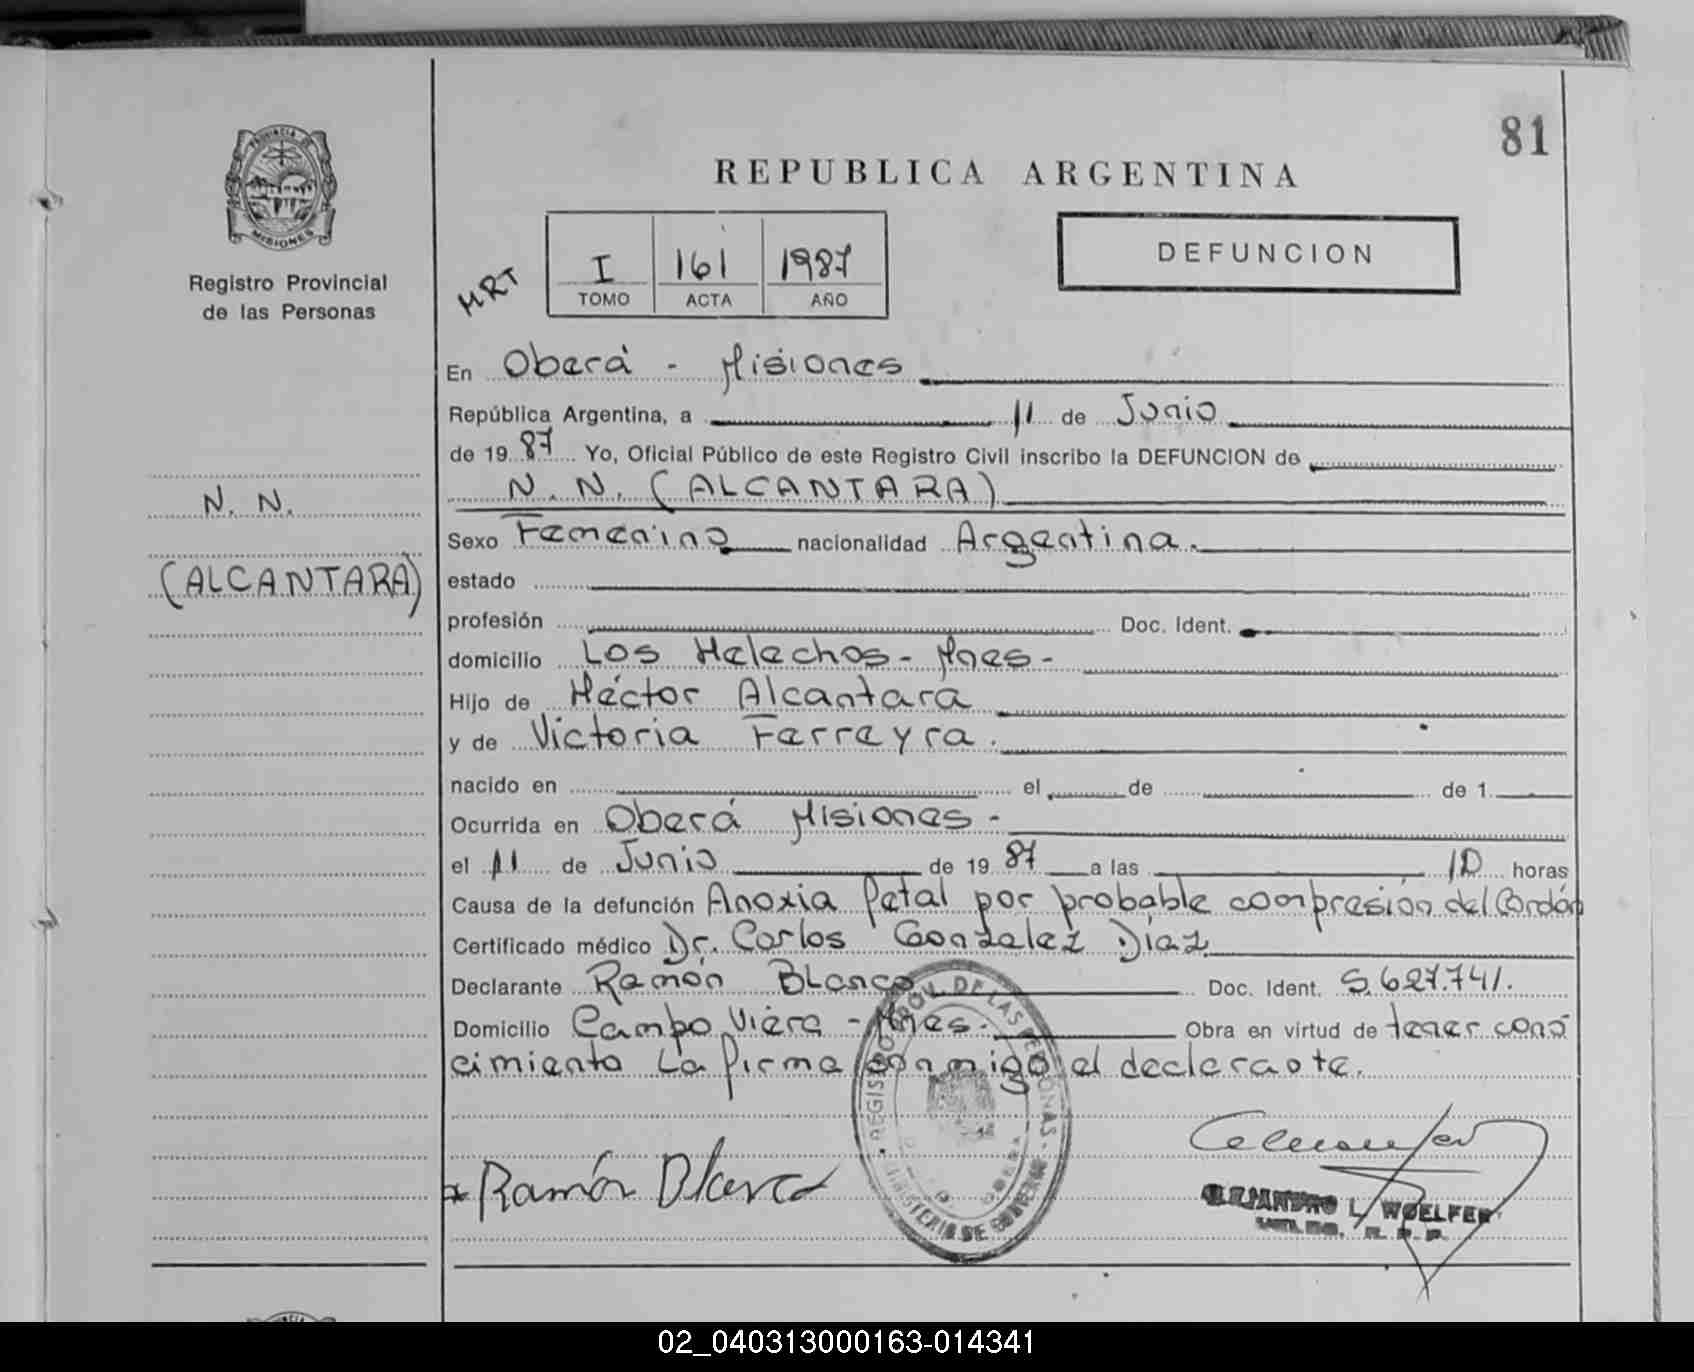 81
REPUBLICA ARGENTINA
PROVINCIA DE
MISIONES
Registro Provincial
de las Personas
MRT
I 161 1987
TOMO ACTA AÑO
DEFUNCION
En Oberá - Misiones
República Argentina, a 11 de Junio
de 19 87 Yo, Oficial Público de este Registro Civil inscribo la DEFUNCION de
N. N. (ALCANTARA)
N. N.
(ALCANTARA)
Sexo Femenino nacionalidad Argentina.
estado
profesión Doc. Ident.
domicilio Los Helechos - Mnes -
Hijo de Héctor Alcantara
y de Victoria Ferreyra.
nacido en el de de 1
Ocurrida en Oberá Misiones -
el 11 de Junio de 19 87 a las 10 horas
Causa de la defunción Anoxia fetal por probable compresión del Cordón
Certificado médico Dr. Carlos Gonzalez Díaz
Declarante Ramón Blanco Doc. Ident. 5.627.741.
Domicilio Campo Viera - Mnes. Obra en virtud de tener cono
cimiento La firma conmigo el declarante.
REGISTRO PROV. DE LAS PERSONAS
MINISTERIO DE GOBIERNO
OBERA
Ramón Blanco
ALEJANDRO L. WOELFER
R. P. P.
02_040313000163-014341